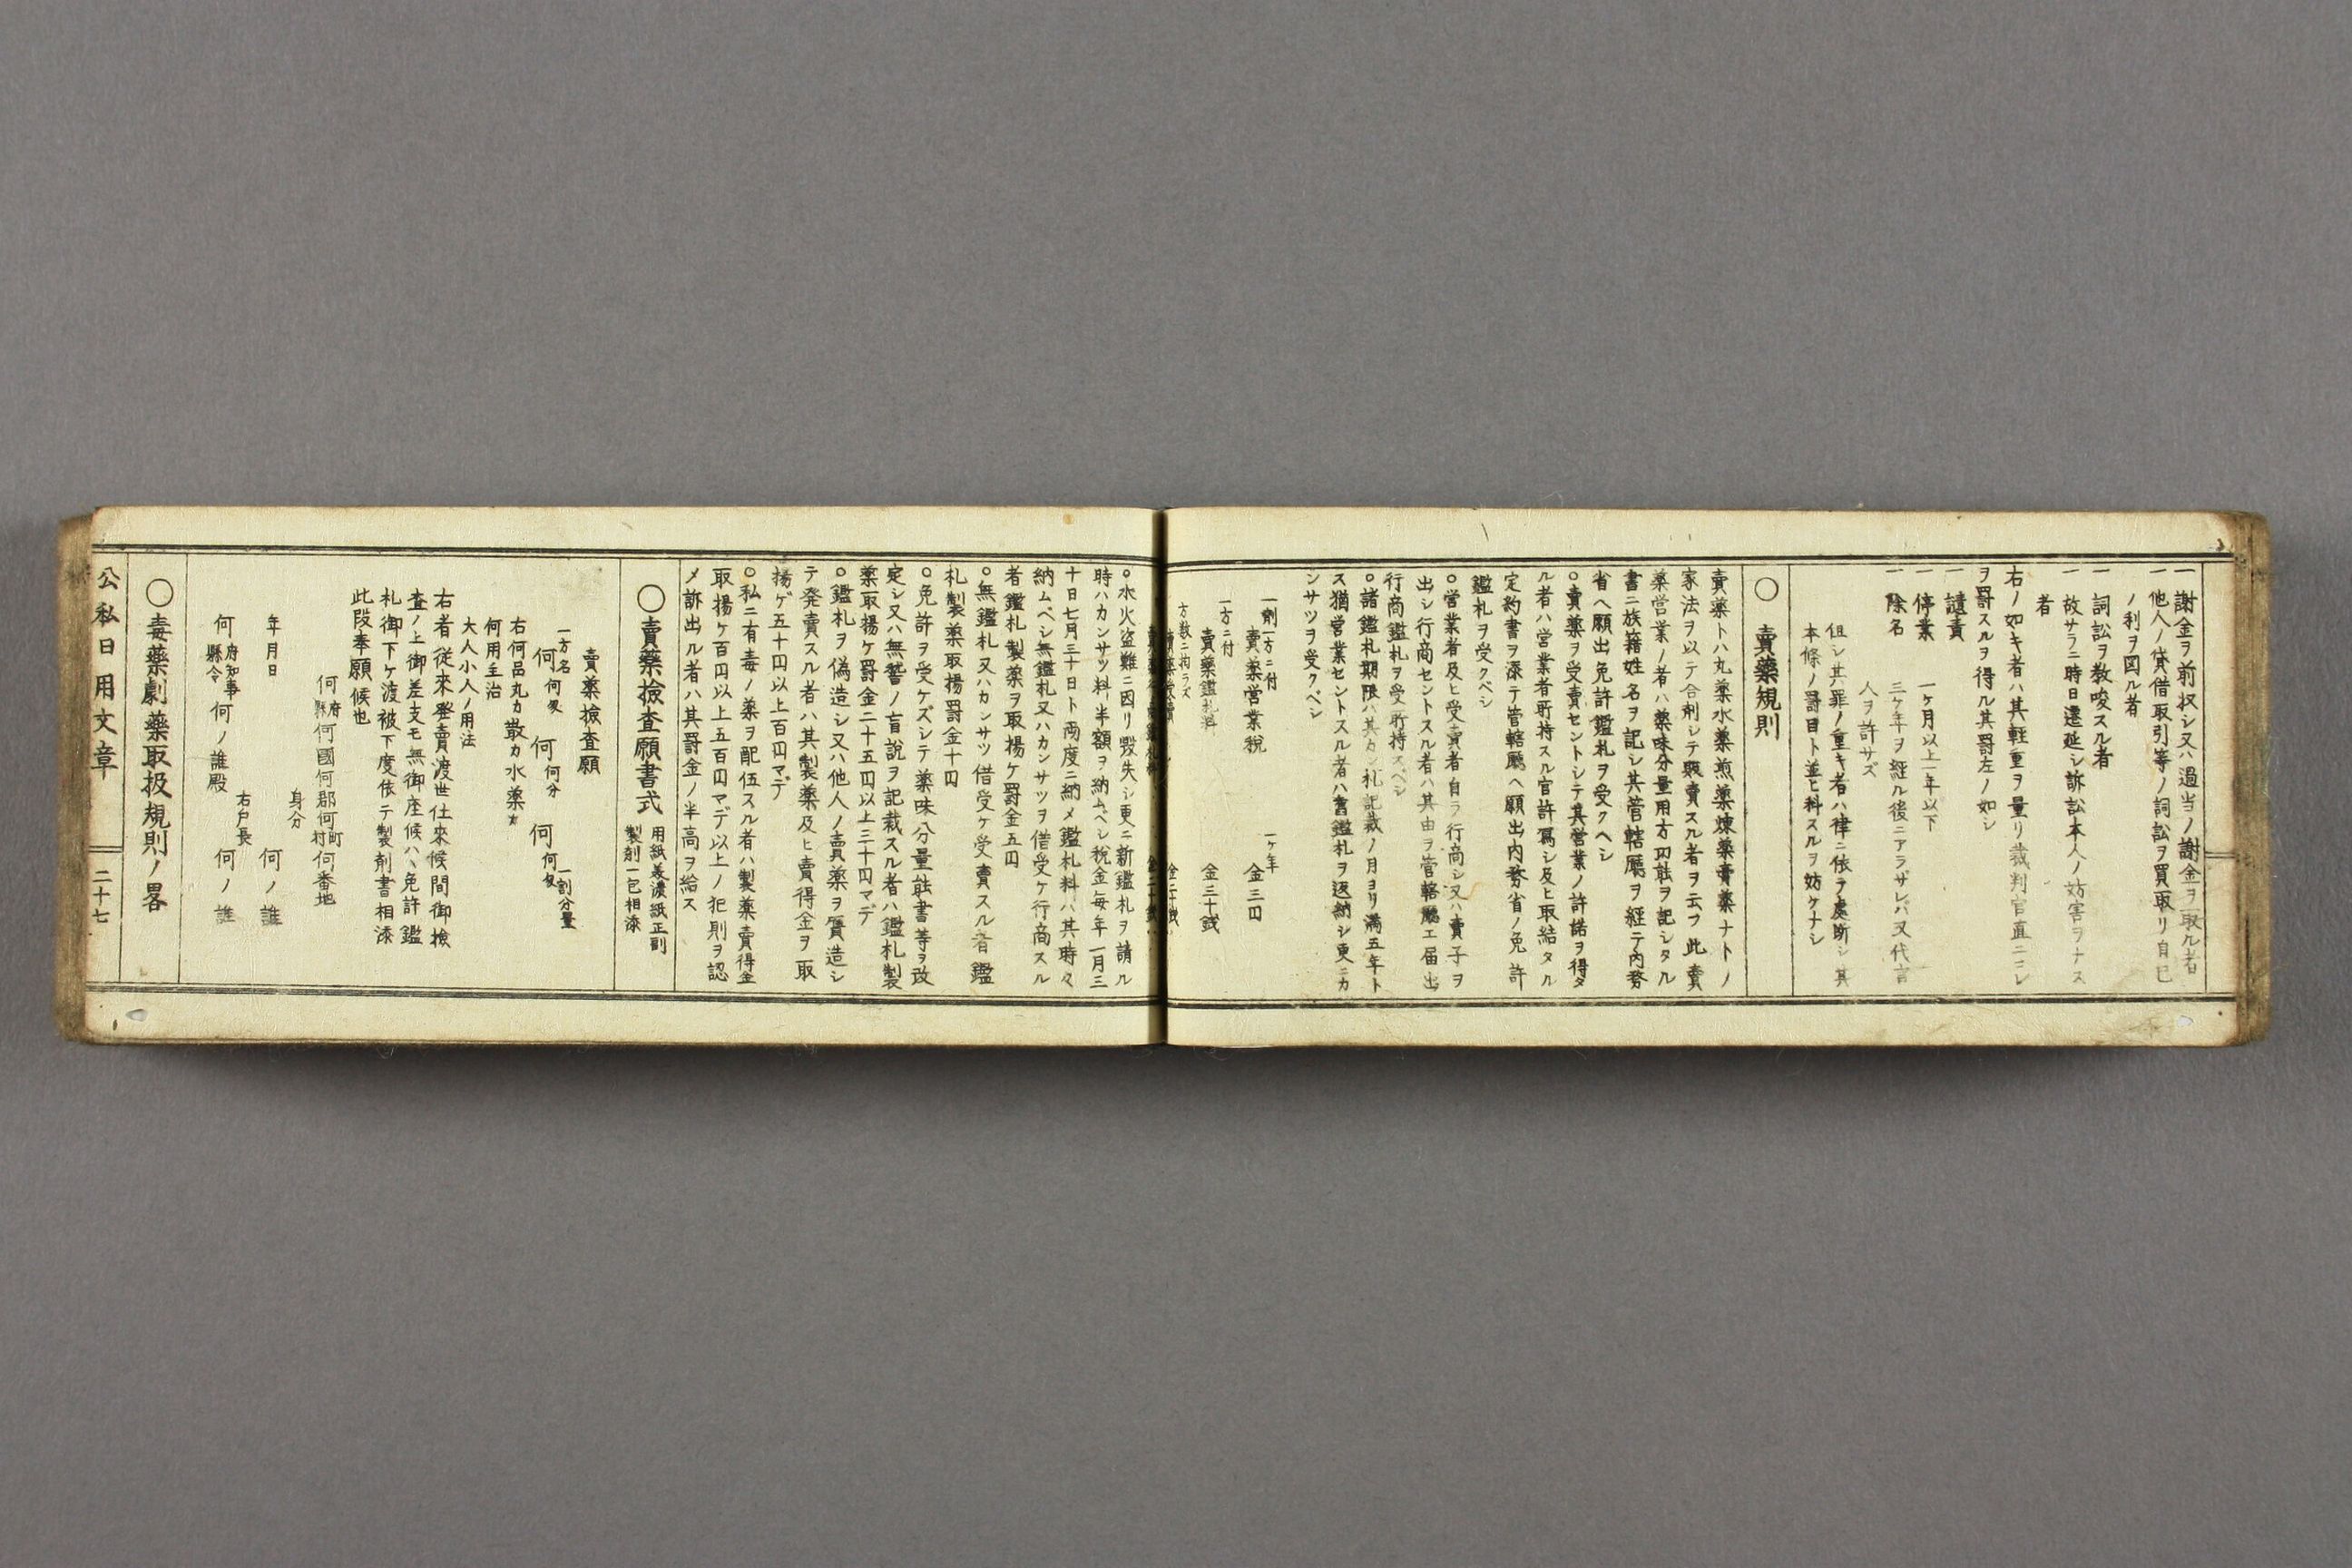 一謝金ヲ前収シ又ハ過当ノ謝金ヲ取ル者
一他人ノ貸借取引等ノ詞訟ヲ買取リ自己
ノ利ヲ図ル者
一詞訟ヲ教唆スル者
一故サラニ時日遷延シ訴訟本人ノ妨害ヲナス
者
右ノ如キ者ハ其軽重ヲ量リ裁判官直ニコレ
ヲ罰スルヲ得ル其罰左ノ如シ
一譴責
一停業 一ヶ月以上一年以下
一除名 三ヶ年ヲ経ル後ニアラザレバ又代言
人ヲ許サズ
但シ其罪ノ重キ者ハ律ニ依テ處断シ其
本條ノ罰目ト並ヒ科スルヲ妨ケナシ
〇賣藥規則
賣薬トハ丸薬水薬煎薬煉薬膏薬ナトノ
家法ヲ以テ合剤シテ販賣スル者ヲ云フ此賣
薬営業ノ者ハ薬味分量用方功能ヲ記シタル
書ニ族籍姓名ヲ記シ其菅轄廳ヲ経テ内務
省ヘ願出免許鑑札ヲ受クヘシ
〇賣薬ヲ受賣セントシテ其営業ノ許諾ヲ得タ
ル者ハ営業者所持スル官許寫シ及ヒ取結タル
定約書ヲ添テ管轄廳ヘ願出内務省ノ免許
鑑札ヲ受クベシ
〇営業者及ヒ受賣者自ラ行商シ又ハ賣子ヲ
出シ行商セントスル者ハ其由ヲ菅轄廳エ届出
行商鑑札ヲ受所持スベシ
〇諸鑑札期限ハ其カン札記裁ノ月ヨリ満五年ト
ス猶営業セントスル者ハ舊鑑札ヲ返納シ更ニカ
ンサツヲ受クベシ
一劑一方ニ付 一ヶ年
賣薬営業税 金三円
一方ニ付
賣薬鑑札料 金三十銭
方数ニ拘ラズ
〇水火盗難ニ因リ毀失シ更ニ新鑑札ヲ請ル
時ハカンサツ料半額ヲ納ムベシ税金毎年一月三
十日七月三十日ト両度ニ納メ鑑札料ハ其時々
納ムベシ無鑑札又ハカンサツヲ借受ケ行商スル
者鑑札製薬ヲ取揚ケ罰金五円
〇無鑑札又ハカンサツ借受ケ受賣スル者鑑
札製薬取揚罰金十円
〇免許ヲ受ケズシテ薬味分量能書等ヲ改
定シ又ハ無稽ノ盲説ヲ記裁スル者ハ鑑札製
薬取揚ケ罰金二十五円以上三十円マデ
〇鑑札ヲ偽造シ又ハ他人ノ賣薬ヲ贋造シ
テ発賣スル者ハ其製薬及ヒ賣得金ヲ取
揚ゲ五十円以上百円マデ
〇私ニ有毒ノ薬ヲ配伍スル者ハ製薬賣得金
取揚ケ百円以上五百円マデ以上ノ犯則ヲ認
メ訴出ル者ハ其罰金ノ半高ヲ給ス
〇賣藥撿査願書式 用紙美濃紙正副
製剤一包相添
賣薬撿査願
一方名 一劑分量
何 何匁 何 何分 何 何匁
右何品丸カ散カ水薬カ
何用主治
大人小人ノ用法
右者従来発賣渡世仕来候間御撿
査ノ上御差支モ無御座候ハヽ免許鑑
札御下ケ渡被下度依テ製剤書相添
此段奉願候也
何府縣何國何郡何町村何番地
身分
年月日 何ノ誰
右戸長
何ノ誰
何府知事縣令何ノ誰殿
〇毒藥劇藥取扱規則ノ畧
公私日用文章 二十七